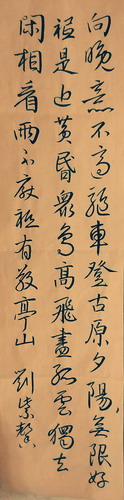 向晚意不適驅車登古原夕陽無限好
祗是近黄昏眾鳥高飛盡孤雲獨去
閑相看兩不厭祗有敬亭山 劉紫